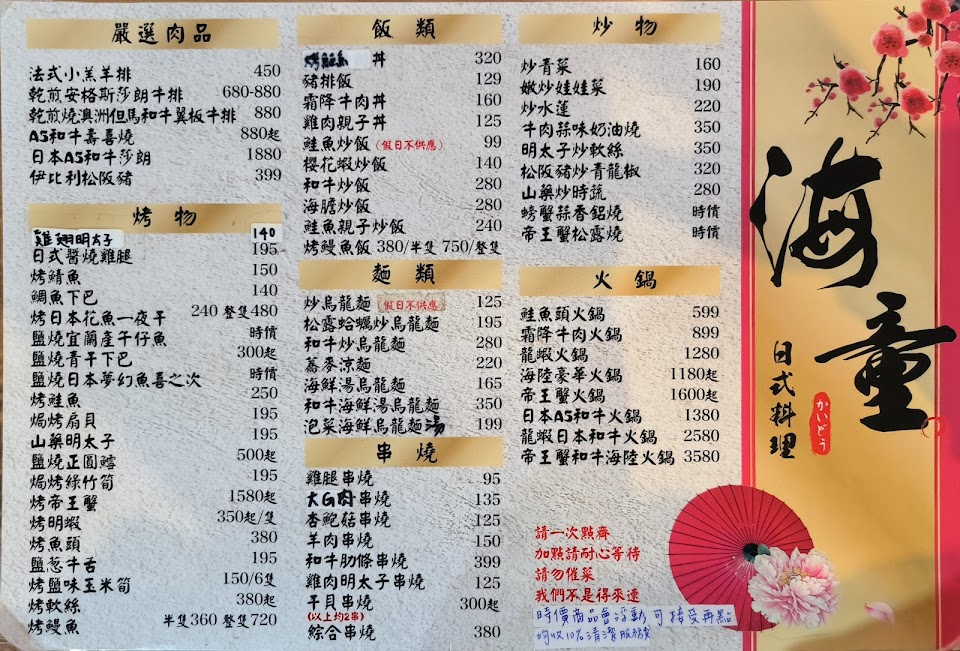 嚴選肉品
法式小羔羊排 450
乾煎安格斯莎朗牛排 680-880
乾煎燒澳洲但馬和牛翼板牛排 880
A5和牛壽喜燒 880起
日本A5和牛莎朗 1880
伊比利松阪豬 399
烤物
雞翅明太子 140
日式醬燒雞腿 195
烤鯖魚 150
鯛魚下巴 140
烤日本花魚一夜干 240 整隻480
鹽燒宜蘭產午仔魚 時價
鹽燒青干下巴 300起
鹽燒日本夢幻魚喜之次 時價
烤鮭魚 250
焗烤扇貝 195
山藥明太子 195
鹽燒正圓鱈 500起
焗烤綠竹筍 195
烤帝王蟹 1580起
烤明蝦 350起/隻
烤魚頭 380
鹽蔥牛舌 195
烤鹽味玉米筍 150/6隻
烤軟絲 380起
烤鰻魚 半隻360 整隻720
飯類
丼 320
豬排飯 129
霜降牛肉丼 160
雞肉親子丼 125
鮭魚炒飯(假日不供應) 99
櫻花蝦炒飯 140
和牛炒飯 280
海膽炒飯 280
鮭魚親子炒飯 240
烤鰻魚飯 380/半隻 750/整隻
麵類
炒烏龍麵(假日不供應) 125
松露蛤蠣炒烏龍麵 195
和牛炒烏龍麵 280
蕎麥涼麵 220
海鮮湯烏龍麵 165
和牛海鮮湯烏龍麵 350
泡菜海鮮烏龍麵湯 199
串燒
雞腿串燒 95
大G肉串燒 135
杏鮑菇串燒 125
羊肉串燒 150
和牛肋條串燒 399
雞肉明太子串燒 125
干貝串燒 300起
(以上均2串)
綜合串燒 380
炒物
炒青菜 160
嫩炒娃娃菜 190
炒水蓮 220
牛肉蒜味奶油燒 350
明太子炒軟絲 350
松阪豬炒青龍椒 320
山藥炒時蔬 280
螃蟹蒜香鋁燒 時價
帝王蟹松露燒 時價
火鍋
鮭魚頭火鍋 599
霜降牛肉火鍋 899
龍蝦火鍋 1280
海陸豪華火鍋 1180起
帝王蟹火鍋 1600起
日本A5和牛火鍋 1380
龍蝦日本和牛火鍋 2580
帝王蟹和牛海陸火鍋 3580
請一次點齊
加點請耐心等待
請勿催菜
我們不是得來速
時價商品會浮動 可接受再點
均收10%清潔服務費
海童
日式料理
かいどう